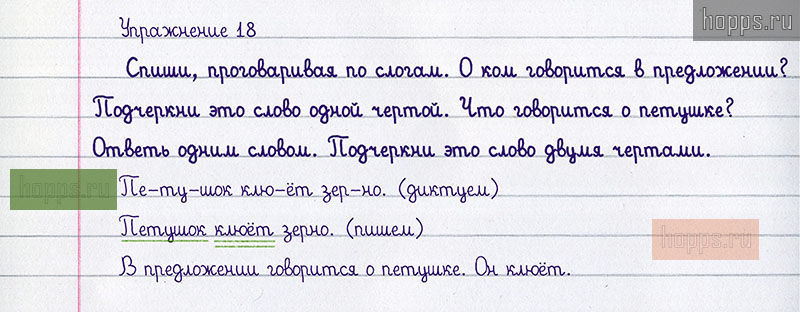 hopps.ru
Упражнение 18
Спиши, проговаривая по слогам. О ком говорится в предложении?
Подчеркни это слово одной чертой. Что говорится о петушке?
Ответь одним словом. Подчеркни это слово двумя чертами.
hopps.ru
Пе-ту-шок клю-ёт зер-но. (диктуем)
Петушок клюёт зерно. (пишем)
hopps.ru
В предложении говорится о петушке. Он клюёт.